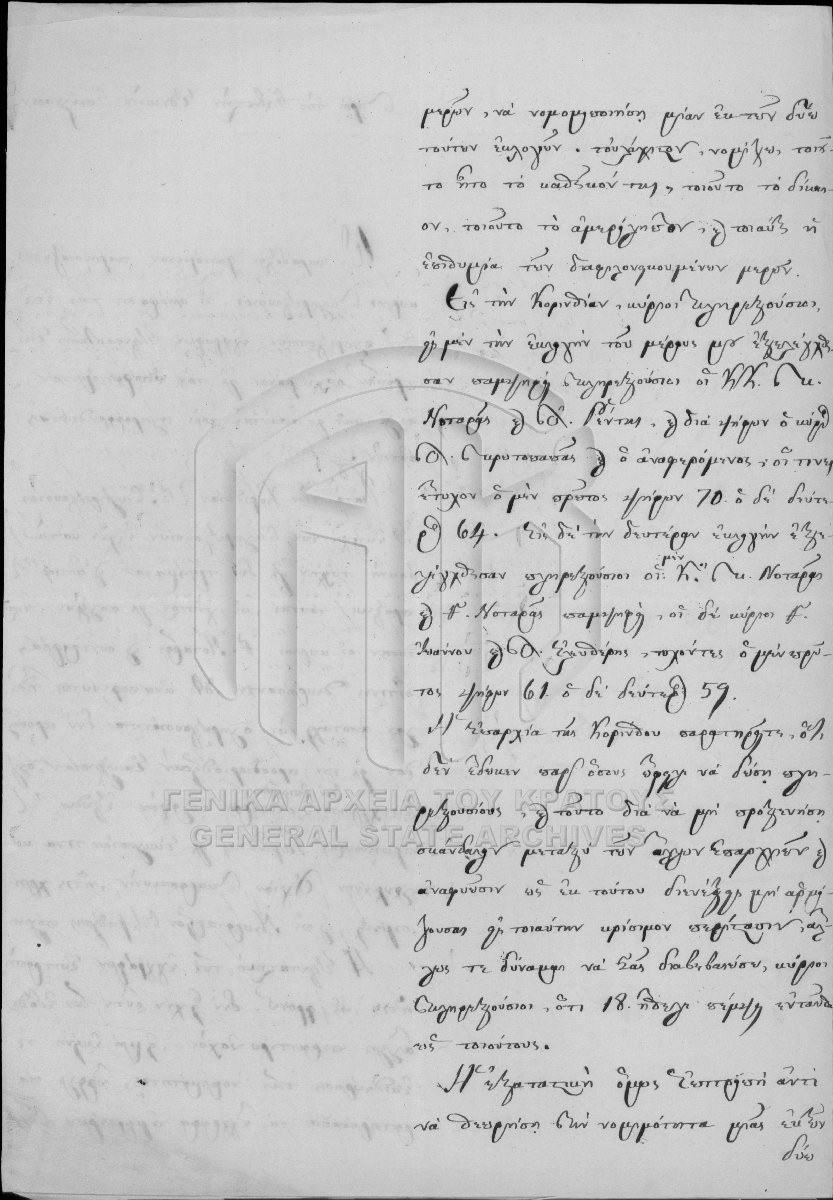 μερῶν, νὰ νομιμοποιήσῃ μίαν ἐκ τῶν δύω
τούτων ἐκλογῶν. τοὐλάχιστον, νομίζω, τοιοῦ-
το ἦτο τὸ καθῆκόν της, τοιοῦτο τὸ δίκαι-
ον, τοιοῦτο τὸ ἀμερόληπτον, καὶ τοιαύτη ἡ
ἐπιθυμία τῶν διαφιλονεικουμένων μερῶν.
Εἰς τὴν Κορινθίαν, κύριοι πληρεξούσιοι,
μὲν τὴν ἐκλογὴν τοῦ μέρους μου ἐξελέχθη-
σαν παμψηφεὶ πληρεξούσιοι οἱ ΚΚ.
Νοταρᾶς καὶ Ῥέντης, καὶ διὰ ψήφων ὁ κύριος
καὶ ὁ ἀναφερόμενος, οἵτινες
ἔτυχον ὁ μὲν πρῶτος ψήφων 70. ὁ δὲ δεύτε-
ρος 64. Εἰς δὲ τὴν δευτέραν ἐκλογὴν ἐξε-
λέχθησαν πληρεξούσιοι οἱ μὲν Κ.οι Νοταρᾶς
καὶ Νοταρᾶς παμψηφεὶ, οἱ δὲ κύριοι
Ἰωάννου καὶ τυχόντες ὁ μὲν πρῶ-
τος ψήφων 61. ὁ δὲ δεύτερος 59.
Ἡ Ἐπαρχία τῆς Κορίνθου παρατηρεῖτε, ὅτι
δὲν ἔδωκεν παρ' ὅσους ὤφειλε νὰ δώσῃ πλη-
ρεξουσίους, καὶ τοῦτο διὰ νὰ μὴ προξενήσῃ
σκάνδαλον μεταξὺ τῶν ἄλλων Ἐπαρχιῶν καὶ
ἀναφυῶσιν ὡς ἐκ τούτου διενέξεις μὴ ἁρμό-
ζουσαι εἰς τοιαύτην κρίσιμον περίστασιν, ἄλ-
λως τε δύναμαι νὰ σᾶς διαβεβαιώσω, κύριοι
πληρεξούσιοι, ὅτι 18. ἤθελε πέμψῃ ἐνταῦθα
εἰς τοιούτους.
Ἡ ἐξεταστικὴ ὅμως Ἐπιτροπὴ ἀντὶ
νὰ θεωρήσῃ τὴν νομιμότητα μιᾶς ἐκ τῶν
δύω
ΓΕΝΙΚΑ ΑΡΧΕΙΑ ΤΟΥ ΚΡΑΤΟΥΣ
GENERAL STATE ARCHIVES